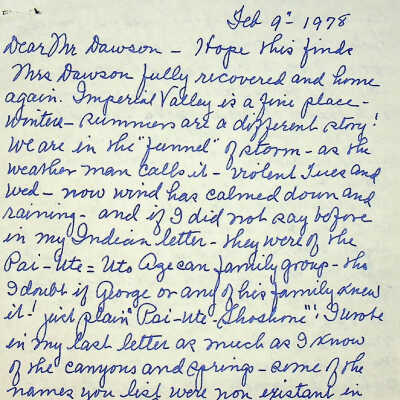 Feb 9th 1978
Dear Mr Dawson - Hope this finds
Mrs Dawson fully recovered and home
again. Imperial Valley is a fine place -
winters - summers are a different story!
We are in the "funnel" of storm - as the
weather man calls it - violent Tues and
Wed - now wind has calmed down and
raining - and if I did not say before
in my Indian letter - they were of the
Pai-Ute = Uto Agecan family group - tho
I doubt if George or any of his family knew
it! just plain "Pai-Ute-Shoshoni"! I wrote
in my last letter as much as I know
of the canyons and springs - some of the
names you list were non existant in